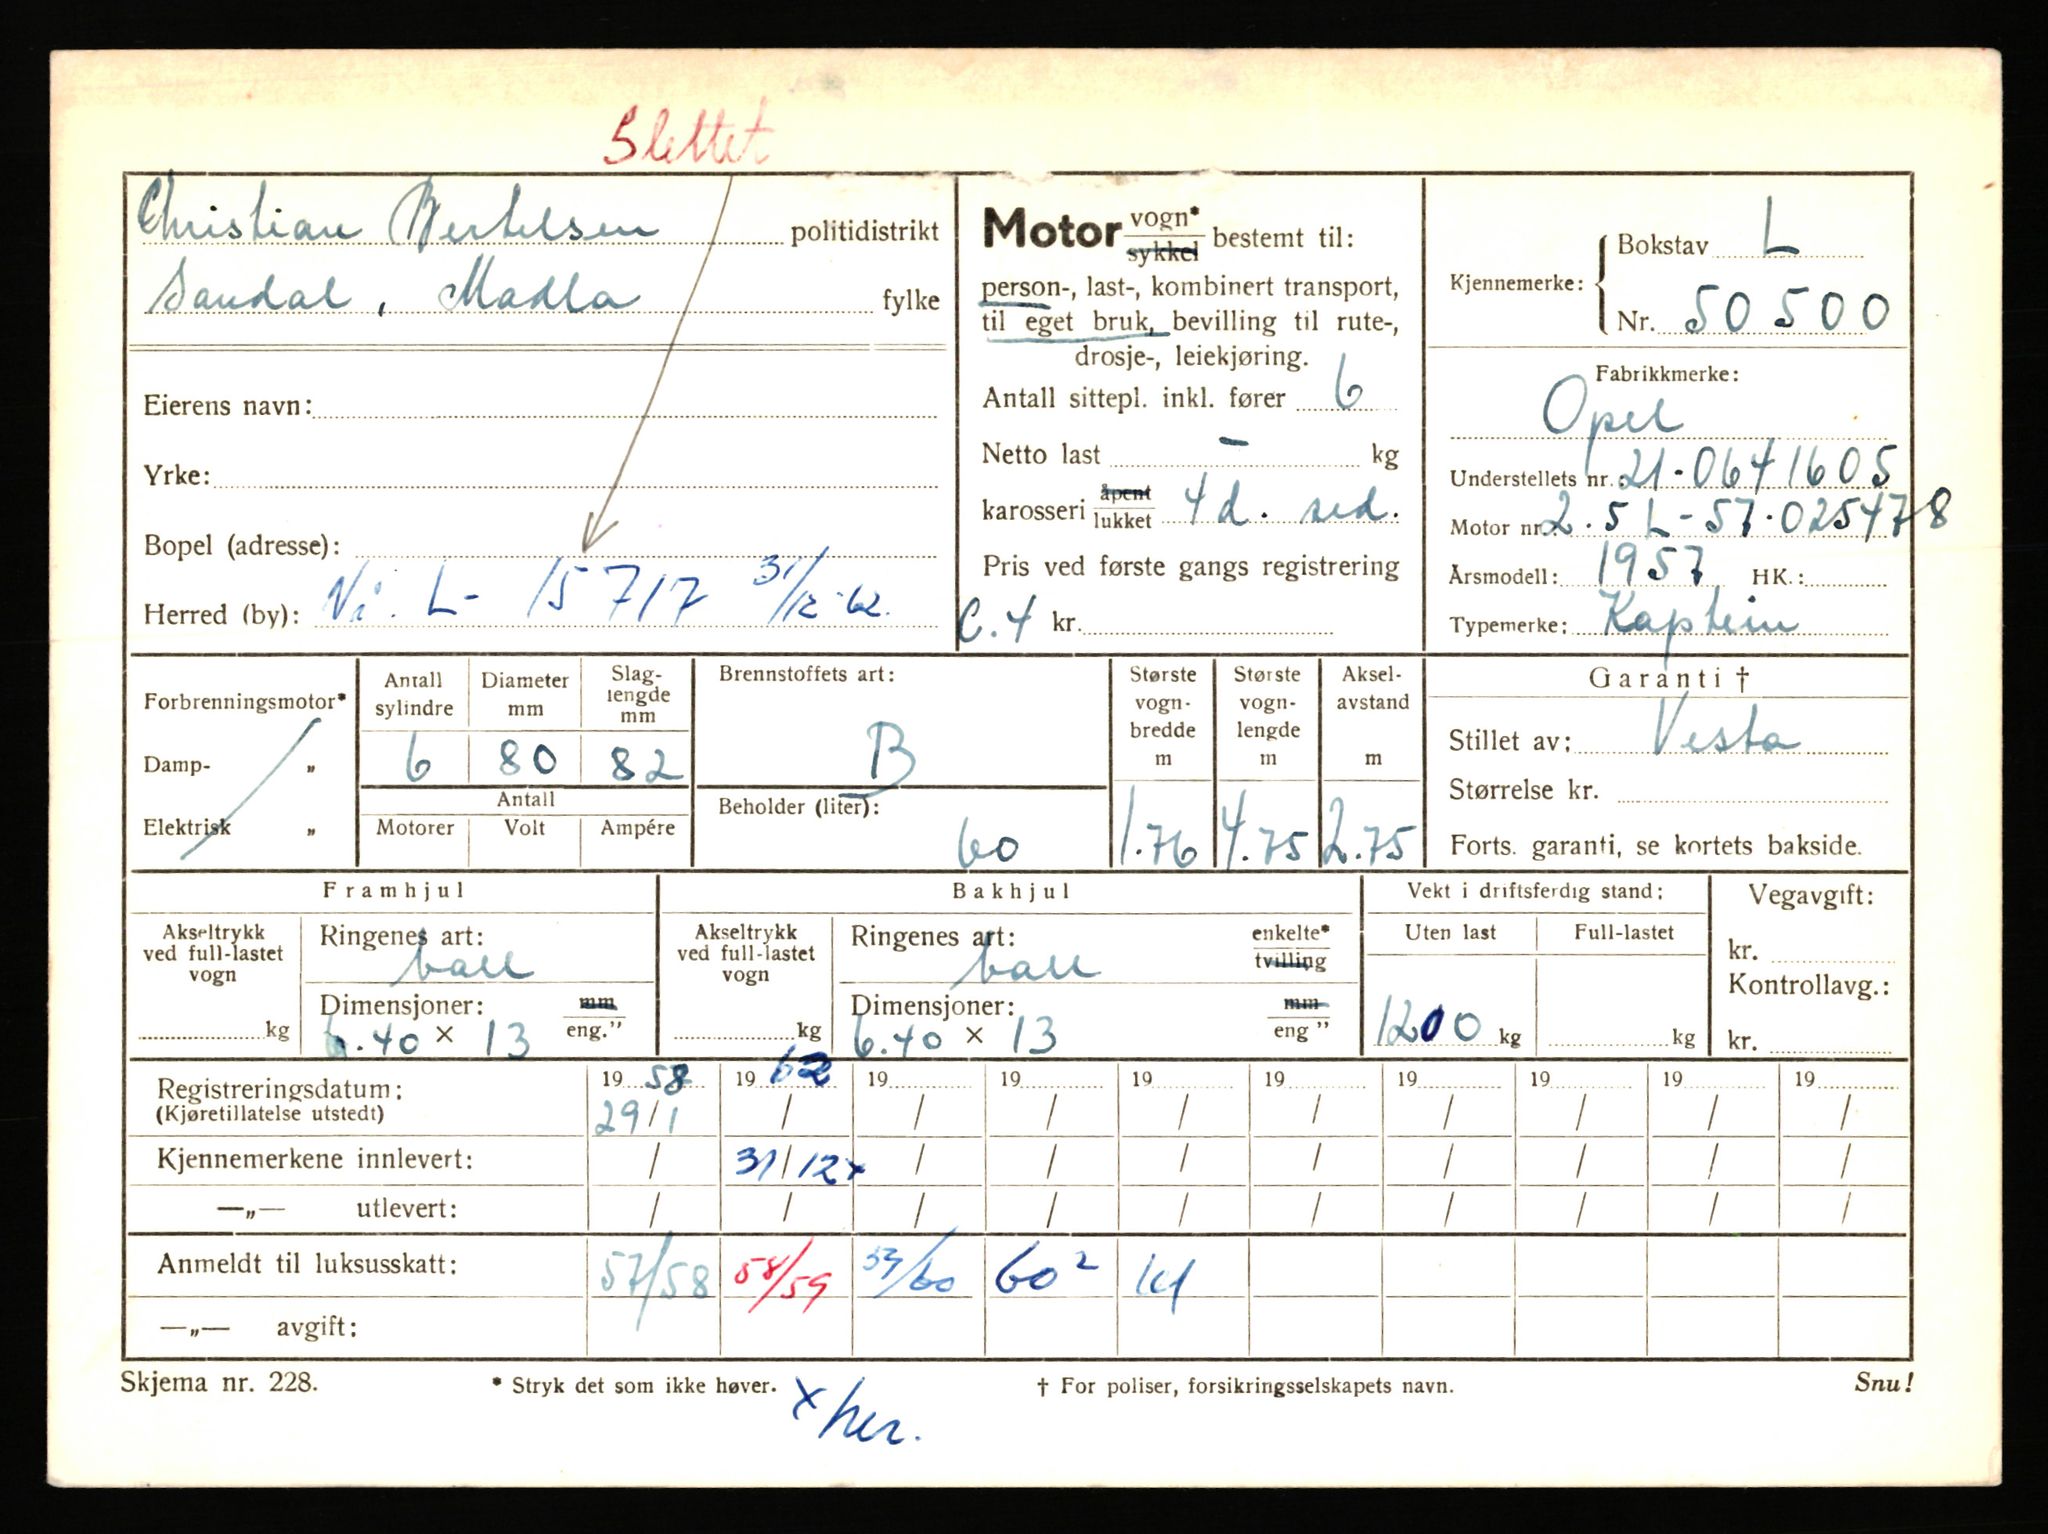 Slettet
Christian Bertelsen politidistrikt
Sandal, Madla fylke
Eierens navn:
Yrke:
Bopel (adresse):
Herred (by): Nå. L- 15717 31/12-62.
Motor vogn* sykkel bestemt til:
person-, last-, kombinert transport,
til eget bruk, bevilling til rute-,
drosje-, leiekjøring.
Antall sittepl. inkl. fører 6
Netto last – kg
karosseri åpent lukket 4 d. sed.
Pris ved første gangs registrering
C.4 kr.
Kjennemerke: Bokstav L
Nr. 50500
Fabrikkmerke:
Opel
Understellets nr.: 21-0641605
Motor nr. 2.5 L-57-025478
Årsmodell: 1957 HK.:
Typemerke: Kaptein
Forbrenningsmotor*
Damp- „
Elektrisk „
Antall sylindre Diameter mm Slag-lengde mm
6 80 82
Antall
Motorer Volt Ampére
Brennstoffets art:
B
Beholder (liter):
60
Største vogn-bredde m
1.76
Største vogn-lengde m
4.75
Aksel-avstand m
2.75
Garanti †
Stillet av: Vesta
Størrelse kr.
Forts. garanti, se kortets bakside.
Framhjul
Akseltrykk ved full-lastet vogn
kg
Ringenes art:
ball
Dimensjoner: mm
6.40 × 13 eng.”
Bakhjul
Akseltrykk ved full-lastet vogn
kg
Ringenes art: enkelte*
ball tvilling
Dimensjoner: mm
6.40 × 13 eng ”
Vekt i driftsferdig stand:
Uten last Full-lastet
1200 kg kg
Vegavgift:
kr.
Kontrollavg.:
kr.
Registreringsdatum: 19 58 19 62 19 19 19 19 19 19 19 19
(Kjøretillatelse utstedt) 29/1 / / / / / / / / /
Kjennemerkene innlevert: / 31/12x / / / / / / / /
—„— utlevert: / / / / / / / / / /
Anmeldt til luksusskatt: 57/58 58/59 59/60 60² 61
—„— avgift:
Skjema nr. 228. * Stryk det som ikke høver. † For poliser, forsikringsselskapets navn. Snu!
x her.